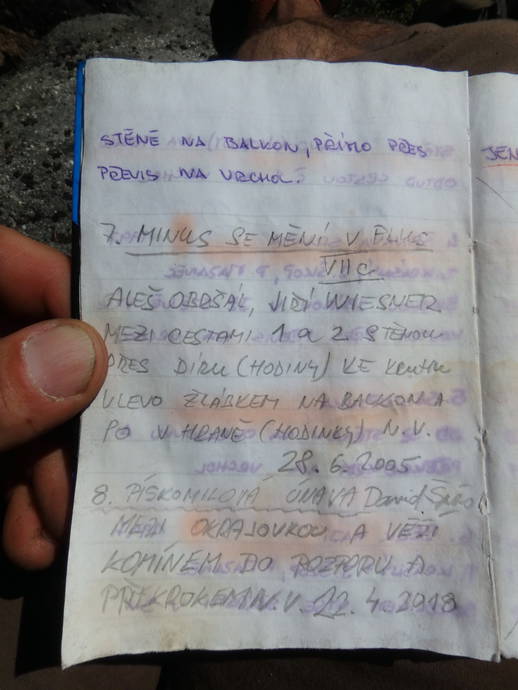 STĚNĚ NA BALKON, PŘÍMO PŘES
PŘEVIS NA VRCHOL.
7. MINUS SE MĚNÍ V PLUS
VIIc
ALEŠ OBRŠÁL, JIŘÍ WIESNER
MEZI CESTAMI 1 a 2 STĚNOU
PŘES DÍRU (HODINY) KE KRUHU
VLEVO ŽLÁBKEM NA BALKON A
PO V HRANĚ (HODINKY) N. V.
28. 6. 2005
8. PÍSKOMILOVÁ ÚNAVA David
MEZI OKRAJOVKOU A VĚŽÍ
KOMÍNEM DO ROZPORU A
PŘEKROKEM N. V. 22. 4 2018
JEN